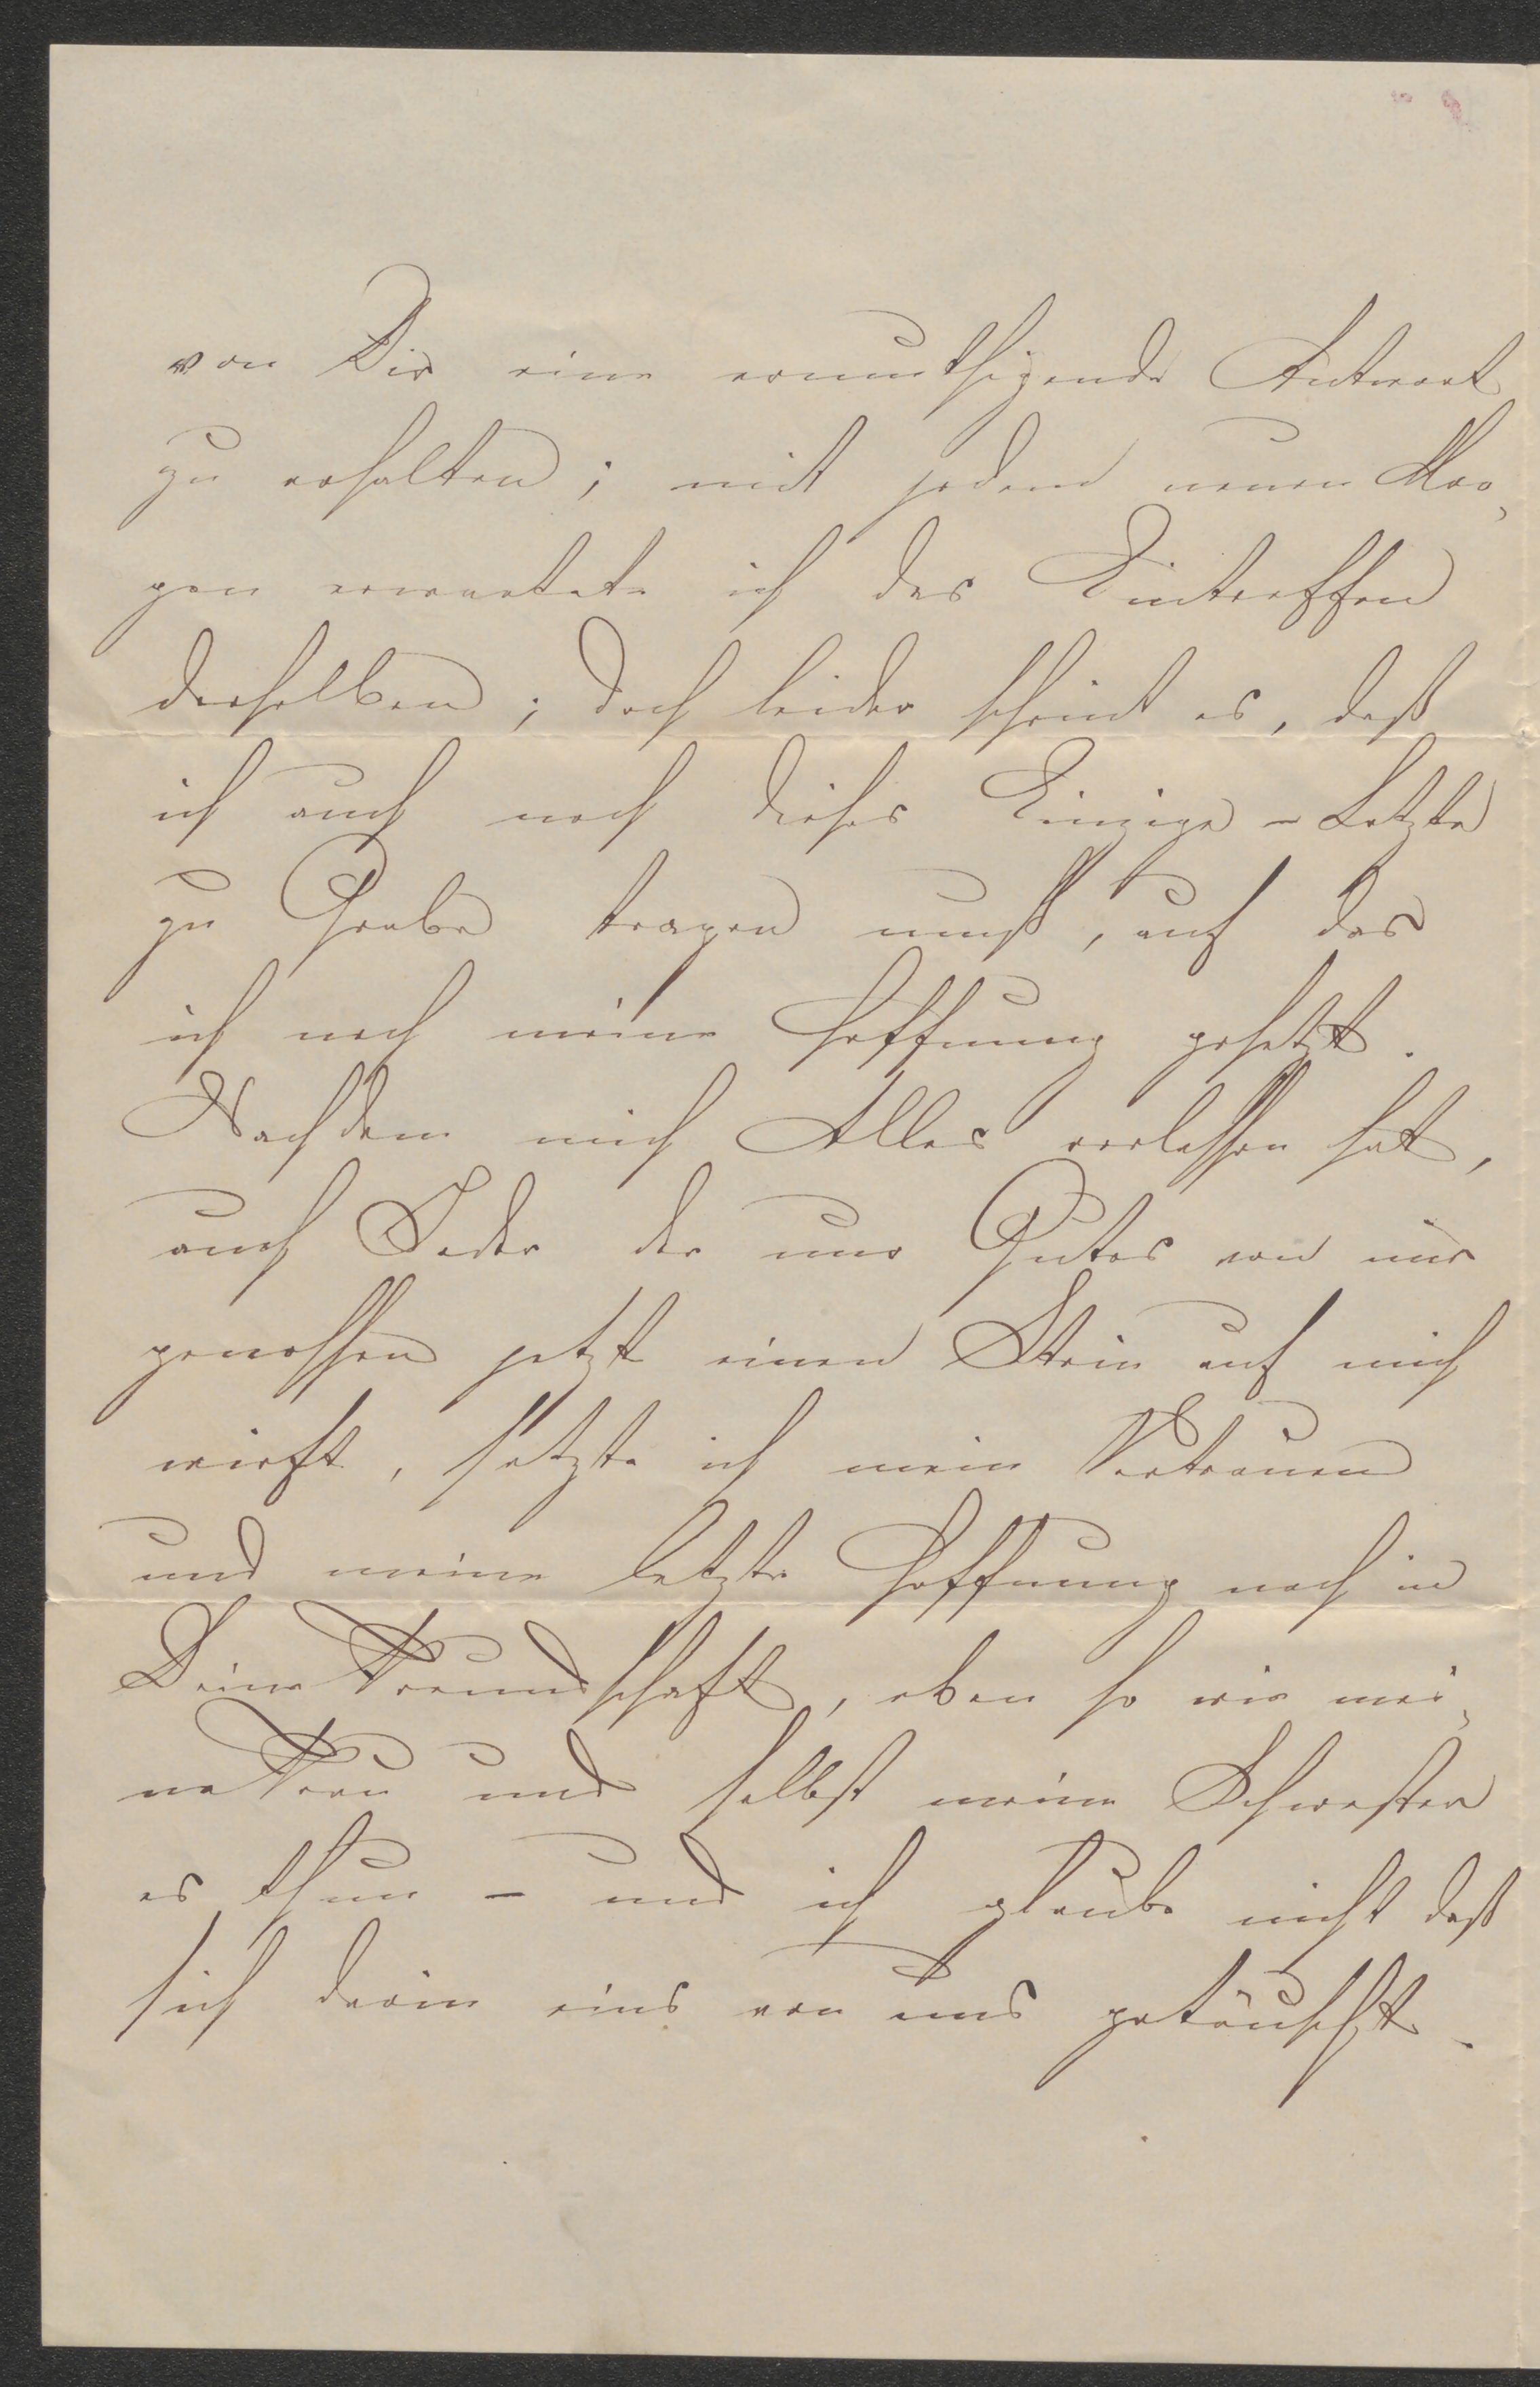 von Dir eine ermuthigende Antwort
zu erhalten; mit jedem neuen Mor¬
gen erwartete ich das Eintreffen
derselben; doch leider scheint es, daß
ich auch noch dieses Einzige - Letzte
zu Grabe tragen muß, auf das
ich noch meine Hoffnung gesetzt.
Nachdem mich Alles verlassen hat,
auch Jeder der nur Gutes von mir
genossen jetzt einen Stein auf mich
wirft, setzte ich mein Vertrauen
und meine letzte Hoffnung noch in
Deine Freundschaft, eben so wie mei¬
ne Frau und selbst meine Schwester
es thun - und ich glaube nicht daß
sich darin eins von uns getäuscht.